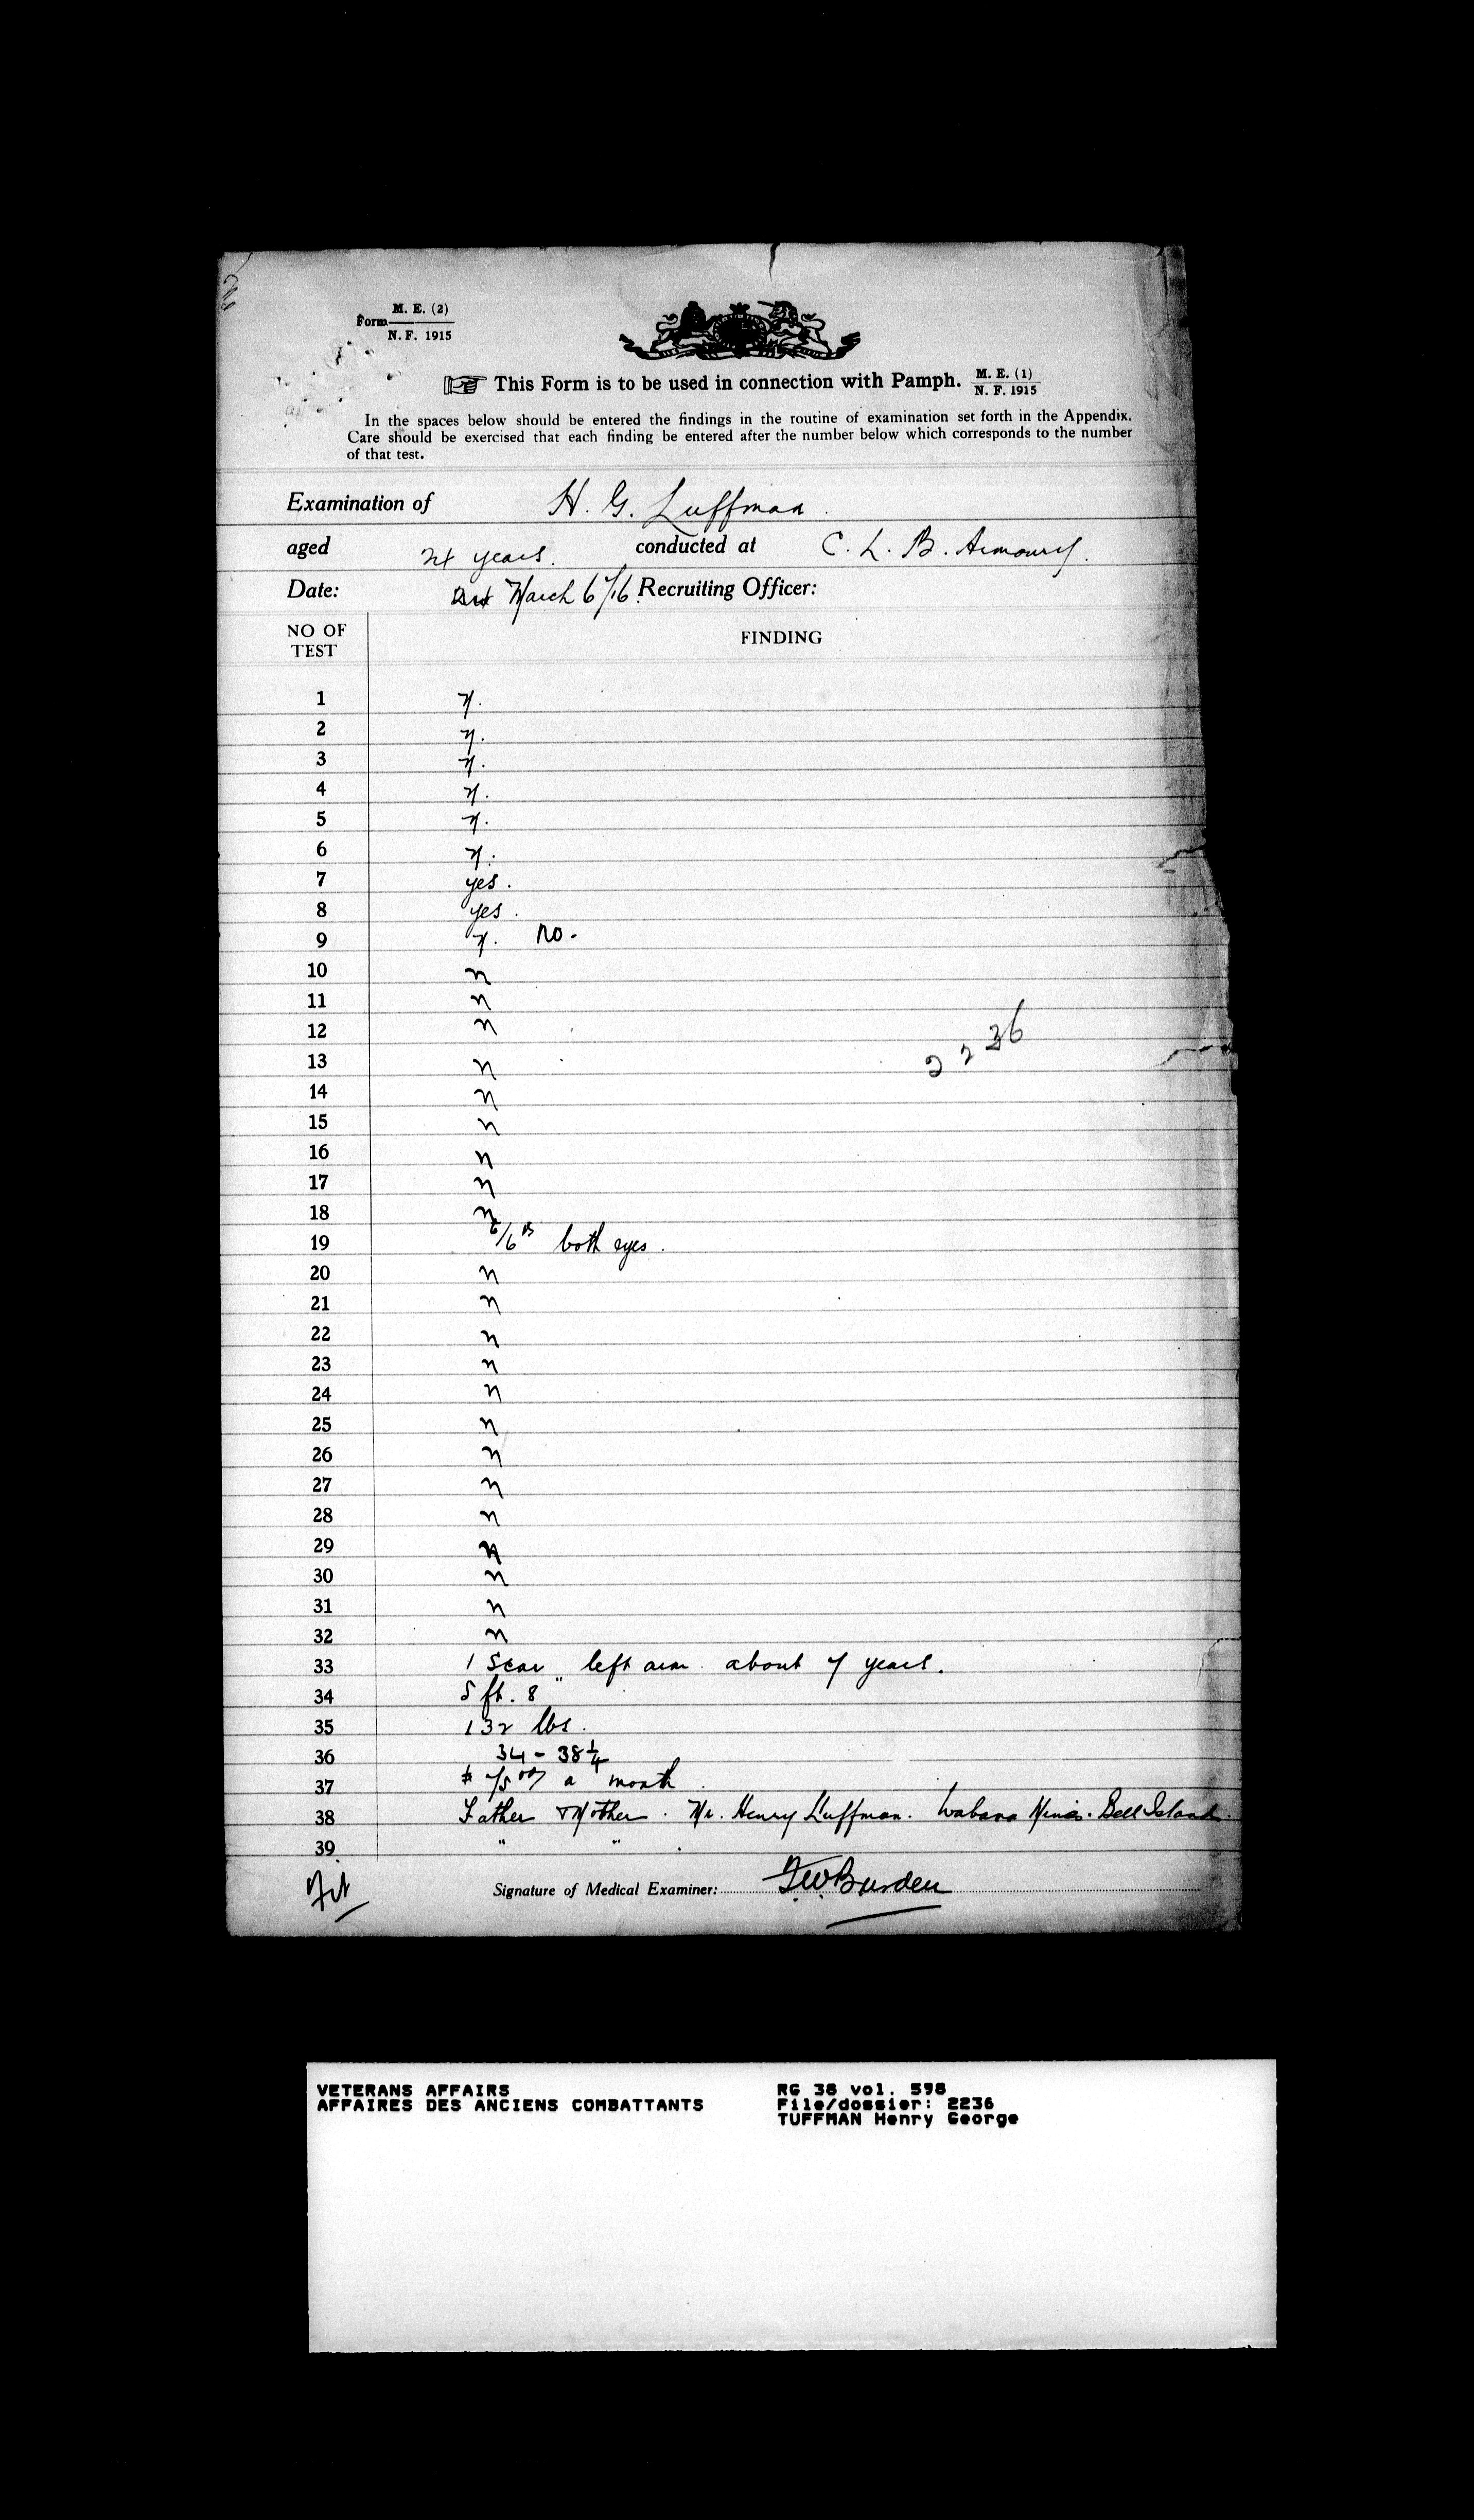 Form M. E. (2)
N. F. 1915
This Form is to be used in connection with Pamph. M. E. (1)
N. F. 1915
In the spaces below should be entered the findings in the routine of examination set forth in the Appendix.
Care should be exercised that each finding be entered after the number below which corresponds to the number
of that test.
Examination of H. G. Luffman.
aged 24 years. conducted at C. L. B. Armoury.
Date: March 6/16. Recruiting Officer:
NO OF TEST FINDING
1 n.
2 n.
3 n.
4 n.
5 n.
6 n.
7 yes.
8 yes.
9 n. no.
10 n
11 n
12 n
2236
13 n
14 n
15 n
16 n
17 n
18 n
19 6/6ths both eyes.
20 n
21 n
22 n
23 n
24 n
25 n
26 n
27 n
28 n
29 n
30 n
31 n
32 n
33 1 Scar left arm about 7 years.
34 5 ft. 8"
35 132 lbs.
36 34 - 38 1/4
37 a month.
38 Father & Mother. Mr. Henry Luffman. Wabana Mines. Bell Island.
39 " "
Fit
Signature of Medical Examiner: F.W. Burden
VETERANS AFFAIRS RG 38 vol. 598
AFFAIRES DES ANCIENS COMBATTANTS File/dossier: 2236
TUFFMAN Henry George